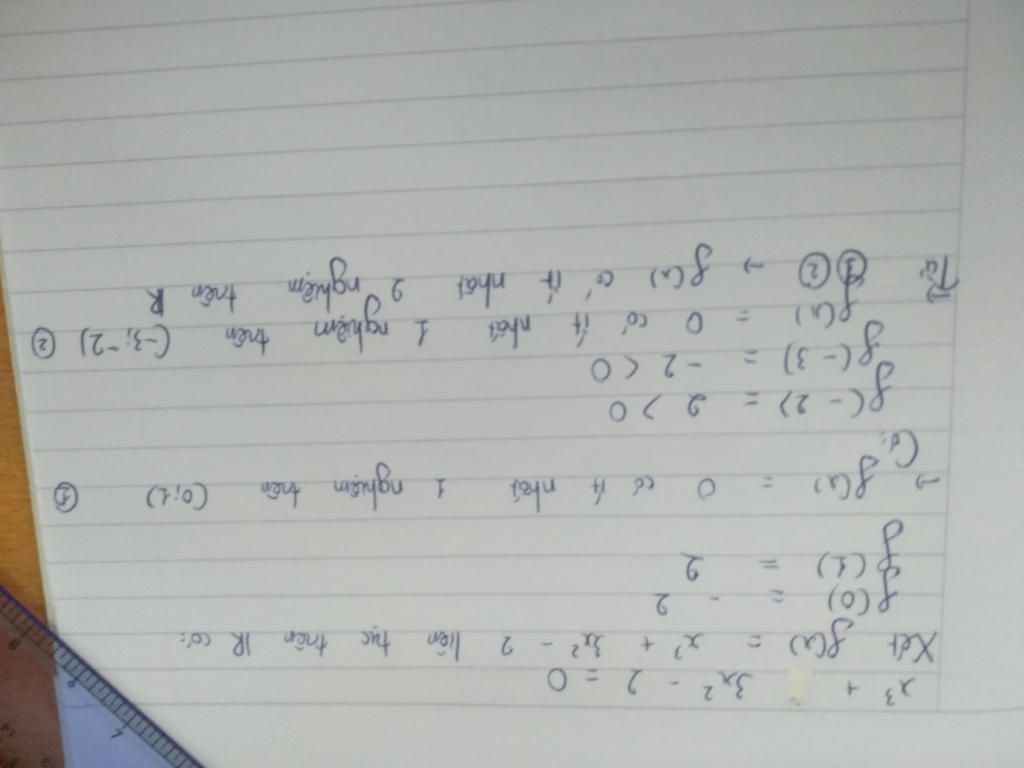 x³ + 3x² - 2 = 0
Xét f(x) = x³ + 3x² - 2 liên tục trên R có:
f(0) = - 2
f(1) = 2
→ f(x) = 0 có ít nhất 1 nghiệm trên (0;1) ①
Có:
f(-2) = 2 > 0
f(-3) = - 2 < 0
f(x) = 0 có ít nhất 1 nghiệm trên (-3;-2) ②
Từ ① ② → f(x) có ít nhất 2 nghiệm trên R